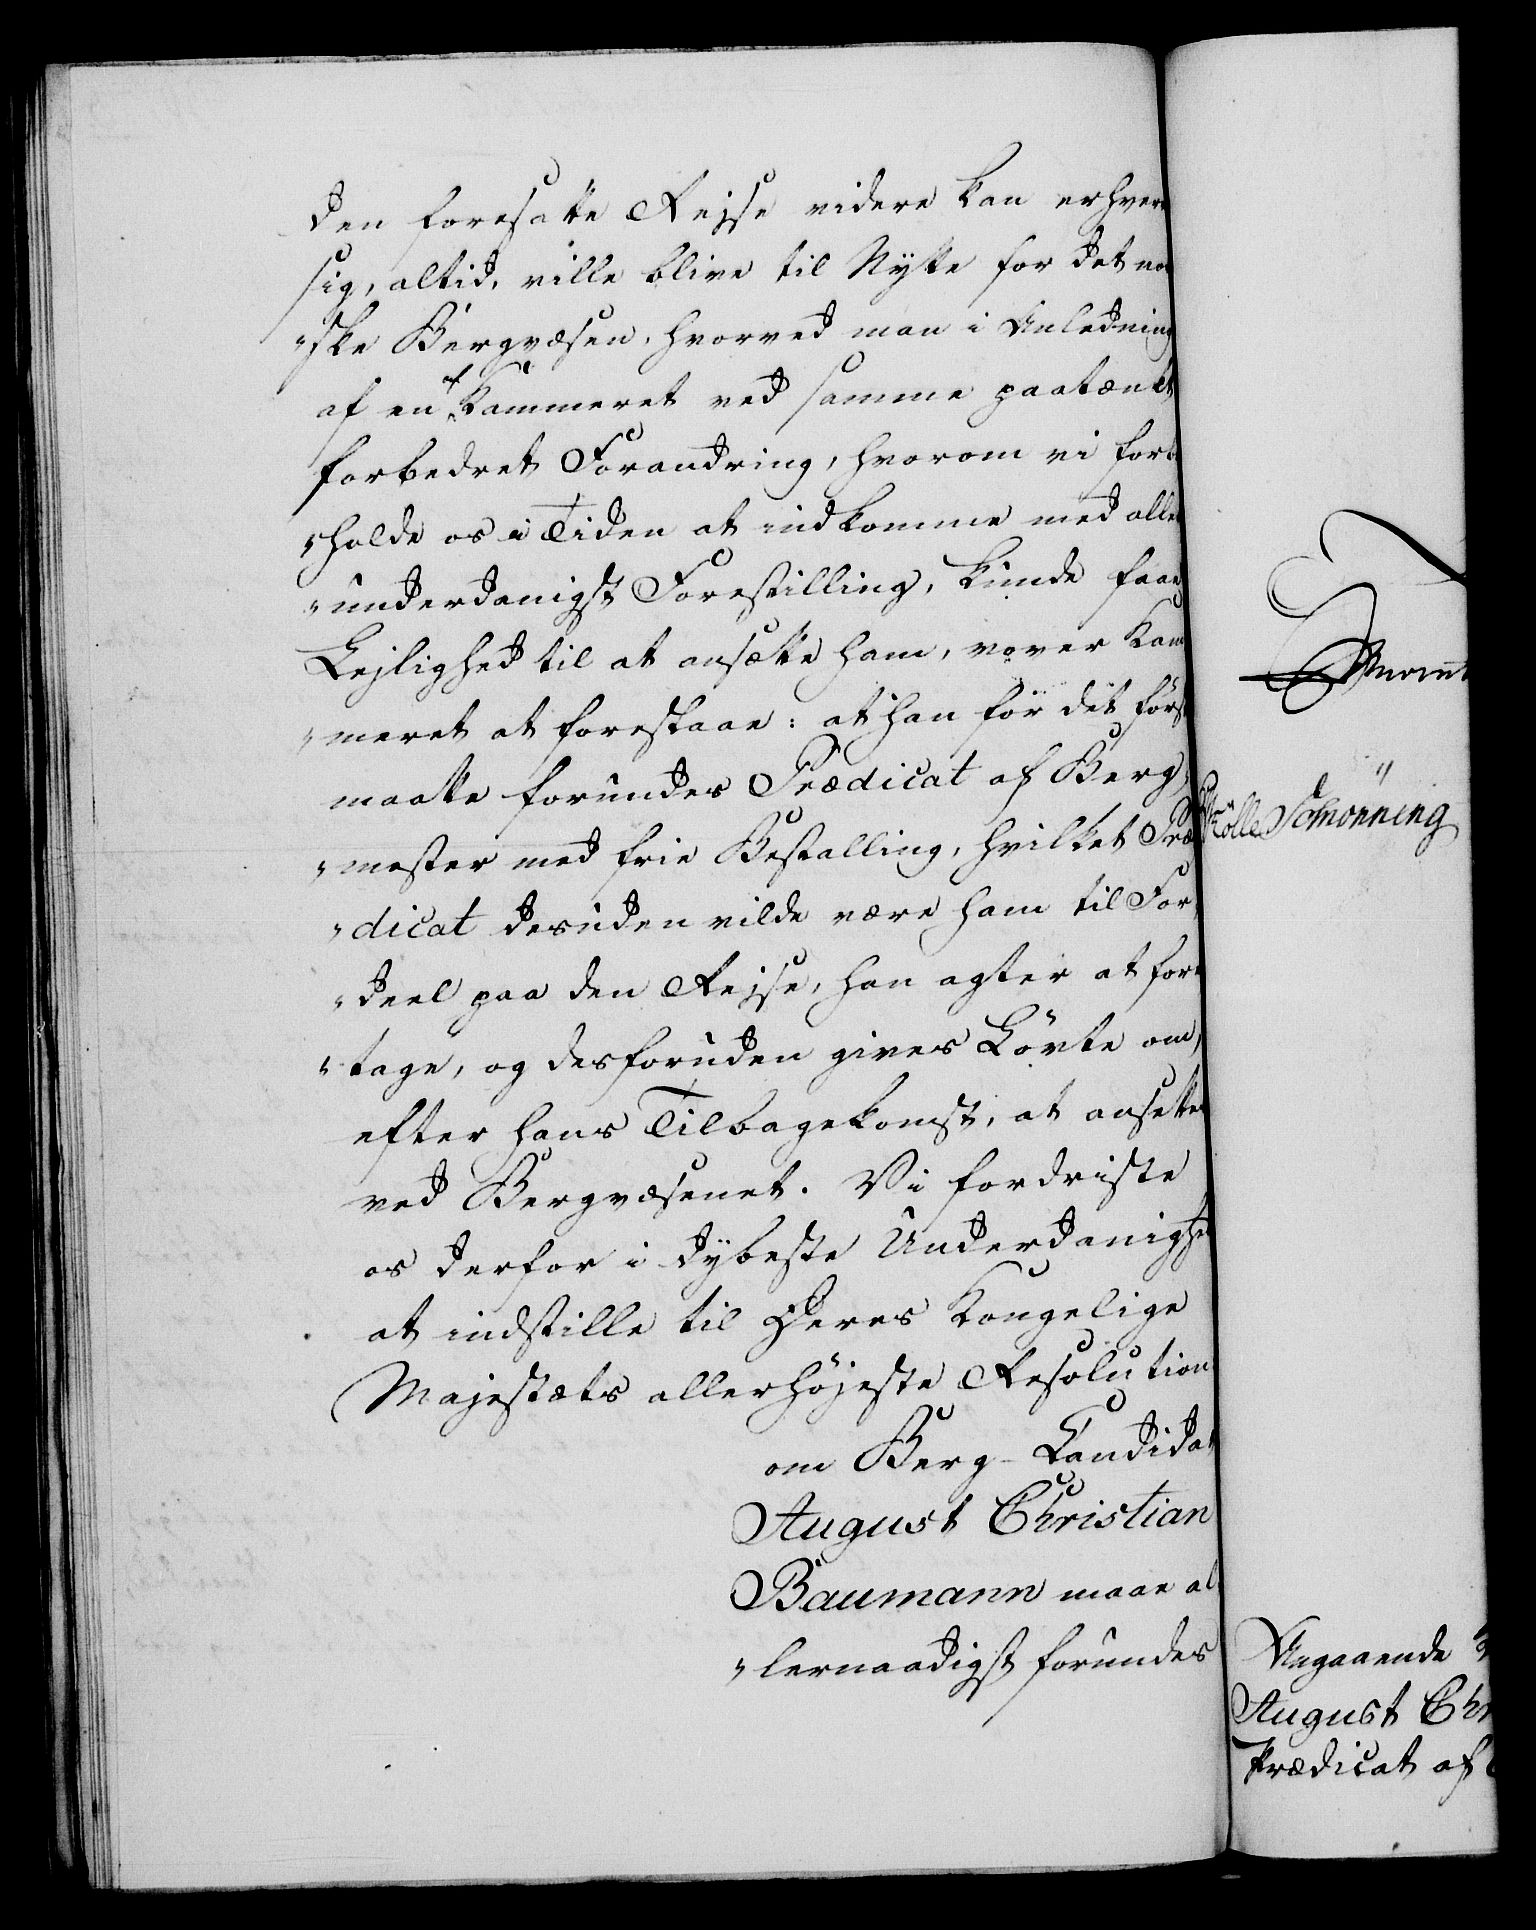 den foresatte Rejse videre kan erhverve
sig, altid, ville blive til Nytte for det no
"ske Bergvæsen, hvorved man i Anledning
af en af Kammeret ved samme paatænkt
forbedret Forandring, hvorom vi forbe
"holde os i Tiden at indkomme med aller
"underdanigst Forestilling, kunde faae
Lejlighed til at ansætte ham, vover Kam
"meret at foreslaae: at han för det först
maatte forundes Prædicat af Berg
"mester med frie Bestalling, hvilket Præ
"dicat desuden vilde være ham til For
"deel paa den Rejse, han agter at fore
"tage, og desforuden gives Lövte om,
efter hans Tilbagekomst, at ansettes
ved Bergvæsenet. Vi fordriste
os derfor i dybeste Underdanighed
at indstille til Deres Kongelige
Majestæts allerhöjeste Resolution
om Berg-Candidat
August Christian
Baumann maae al
"lernaadigst forundes
Schönning
Angaaende
August Chr
Prædicat af